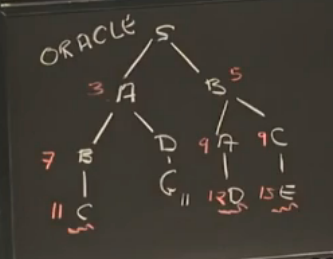 ORACLE S
3 A B 5
7 B D 9 A 9 C
11 C G 11 12 D 15 E